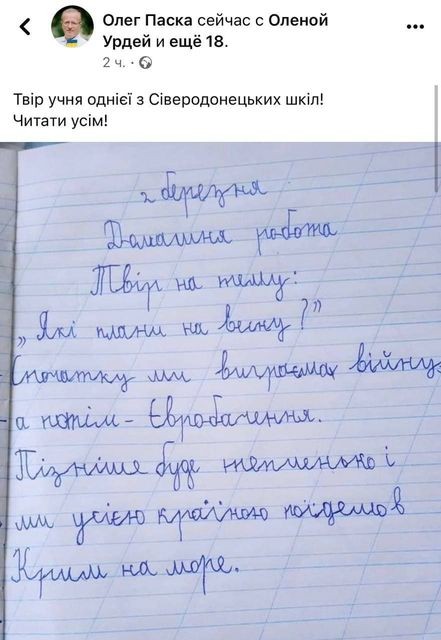 Олег Паска сейчас с Оленой
Урдей и ещё 18.
2 ч. ·
Твір учня однієї з Сіверодонецьких шкіл!
Читати усім!
2 березня
Домашня робота
Твір на тему:
„Які плани на весну?”
Спочатку ми виграємо війну,
а потім – Євробачення.
Пізніше буде тепленько і
ми усією країною поїдемо в
Крим на море.